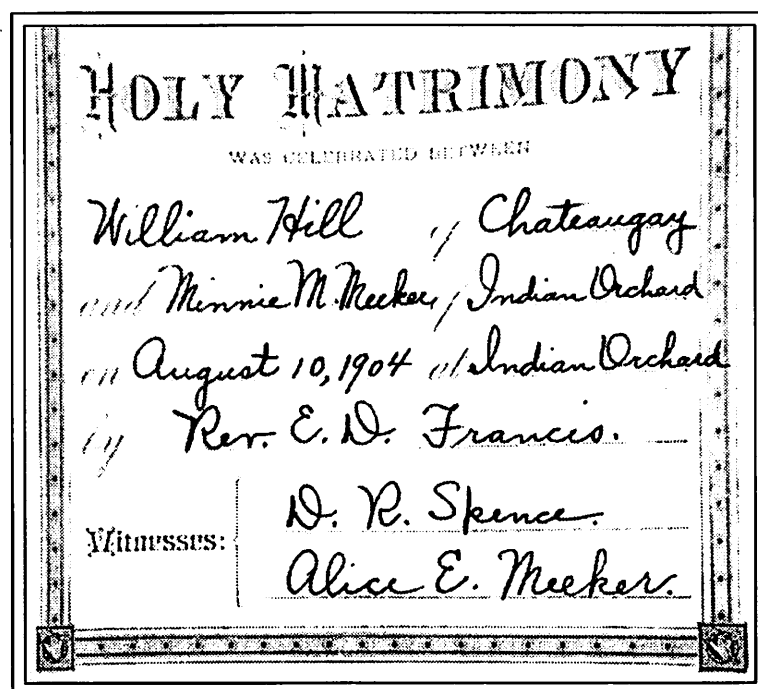 HOLY MATRIMONY
WAS CELEBRATED BETWEEN
William Hill of Chateaugay
and Minnie M. Meeker of Indian Orchard
on August 10, 1904 at Indian Orchard
by Rev. E. D. Francis.
Witnesses:
D. R. Spence.
Alice E. Meeker.